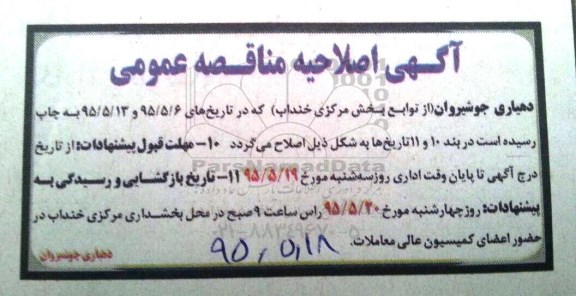 آگهی اصلاحیه مناقصه عمومی
دهیاری جوشیروان(از توابع بخش مرکزی خنداب) که در تاریخ‌های ۹۵/۵/۶ و ۹۵/۵/۱۳ به چاپ
رسیده است در بند ۱۰ و ۱۱تاریخ‌ها به شکل ذیل اصلاح می‌گردد ۱۰- مهلت قبول پیشنهادات: از تاریخ
درج آگهی تا پایان وقت اداری روز سه‌شنبه مورخ ۹۵/۵/۱۹ ۱۱- تاریخ بازگشایی و رسیدگی به
پیشنهادات: روز چهارشنبه مورخ ۹۵/۵/۲۰ راس ساعت ۹ صبح در محل بخشداری مرکزی خنداب در
حضور اعضای کمیسیون عالی معاملات.
دهیاری جوشیروان
۹۵،۵،۱۸
ParsNamadData
۰۲۱-۸۸۳۴۹۶۷۰-۵